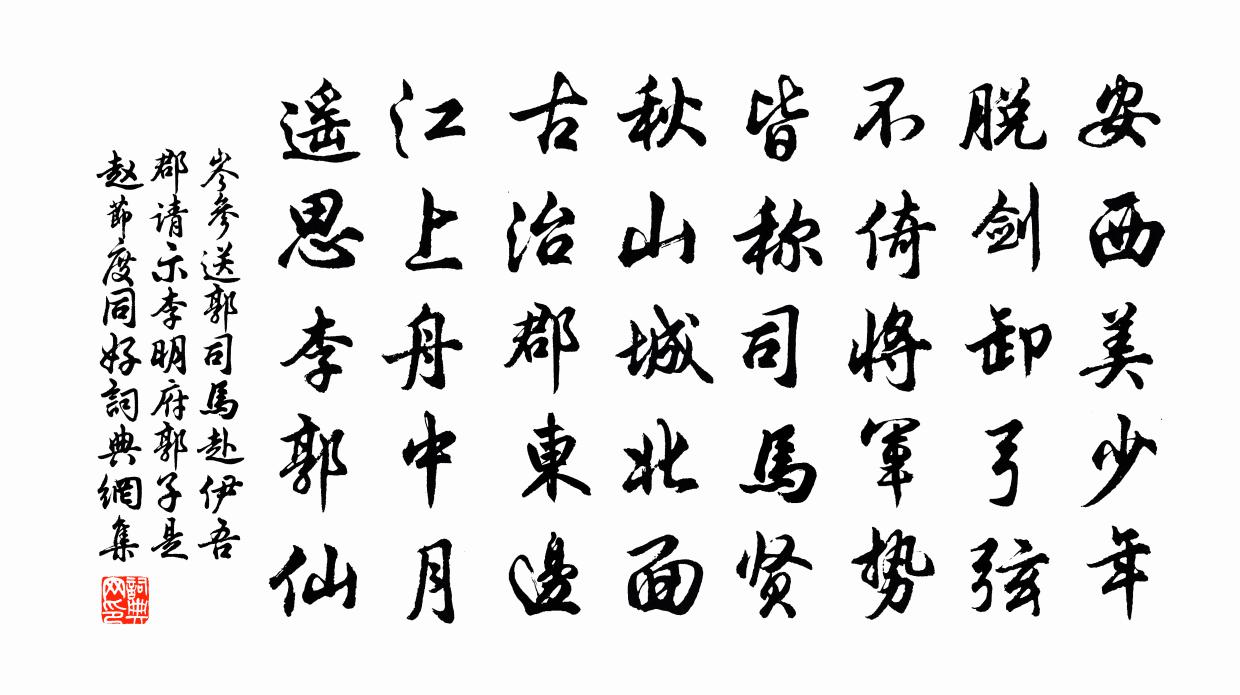 安西美少年
脱剑卸弓弦
不倚將军势
皆称司馬贤
秋山城北面
古治郡東邊
江上舟中月
遥思李郭仙
岑參送郭司馬赴伊吾
郡请示李明府郭子是
赵節度同好詞典網集
詞典网印